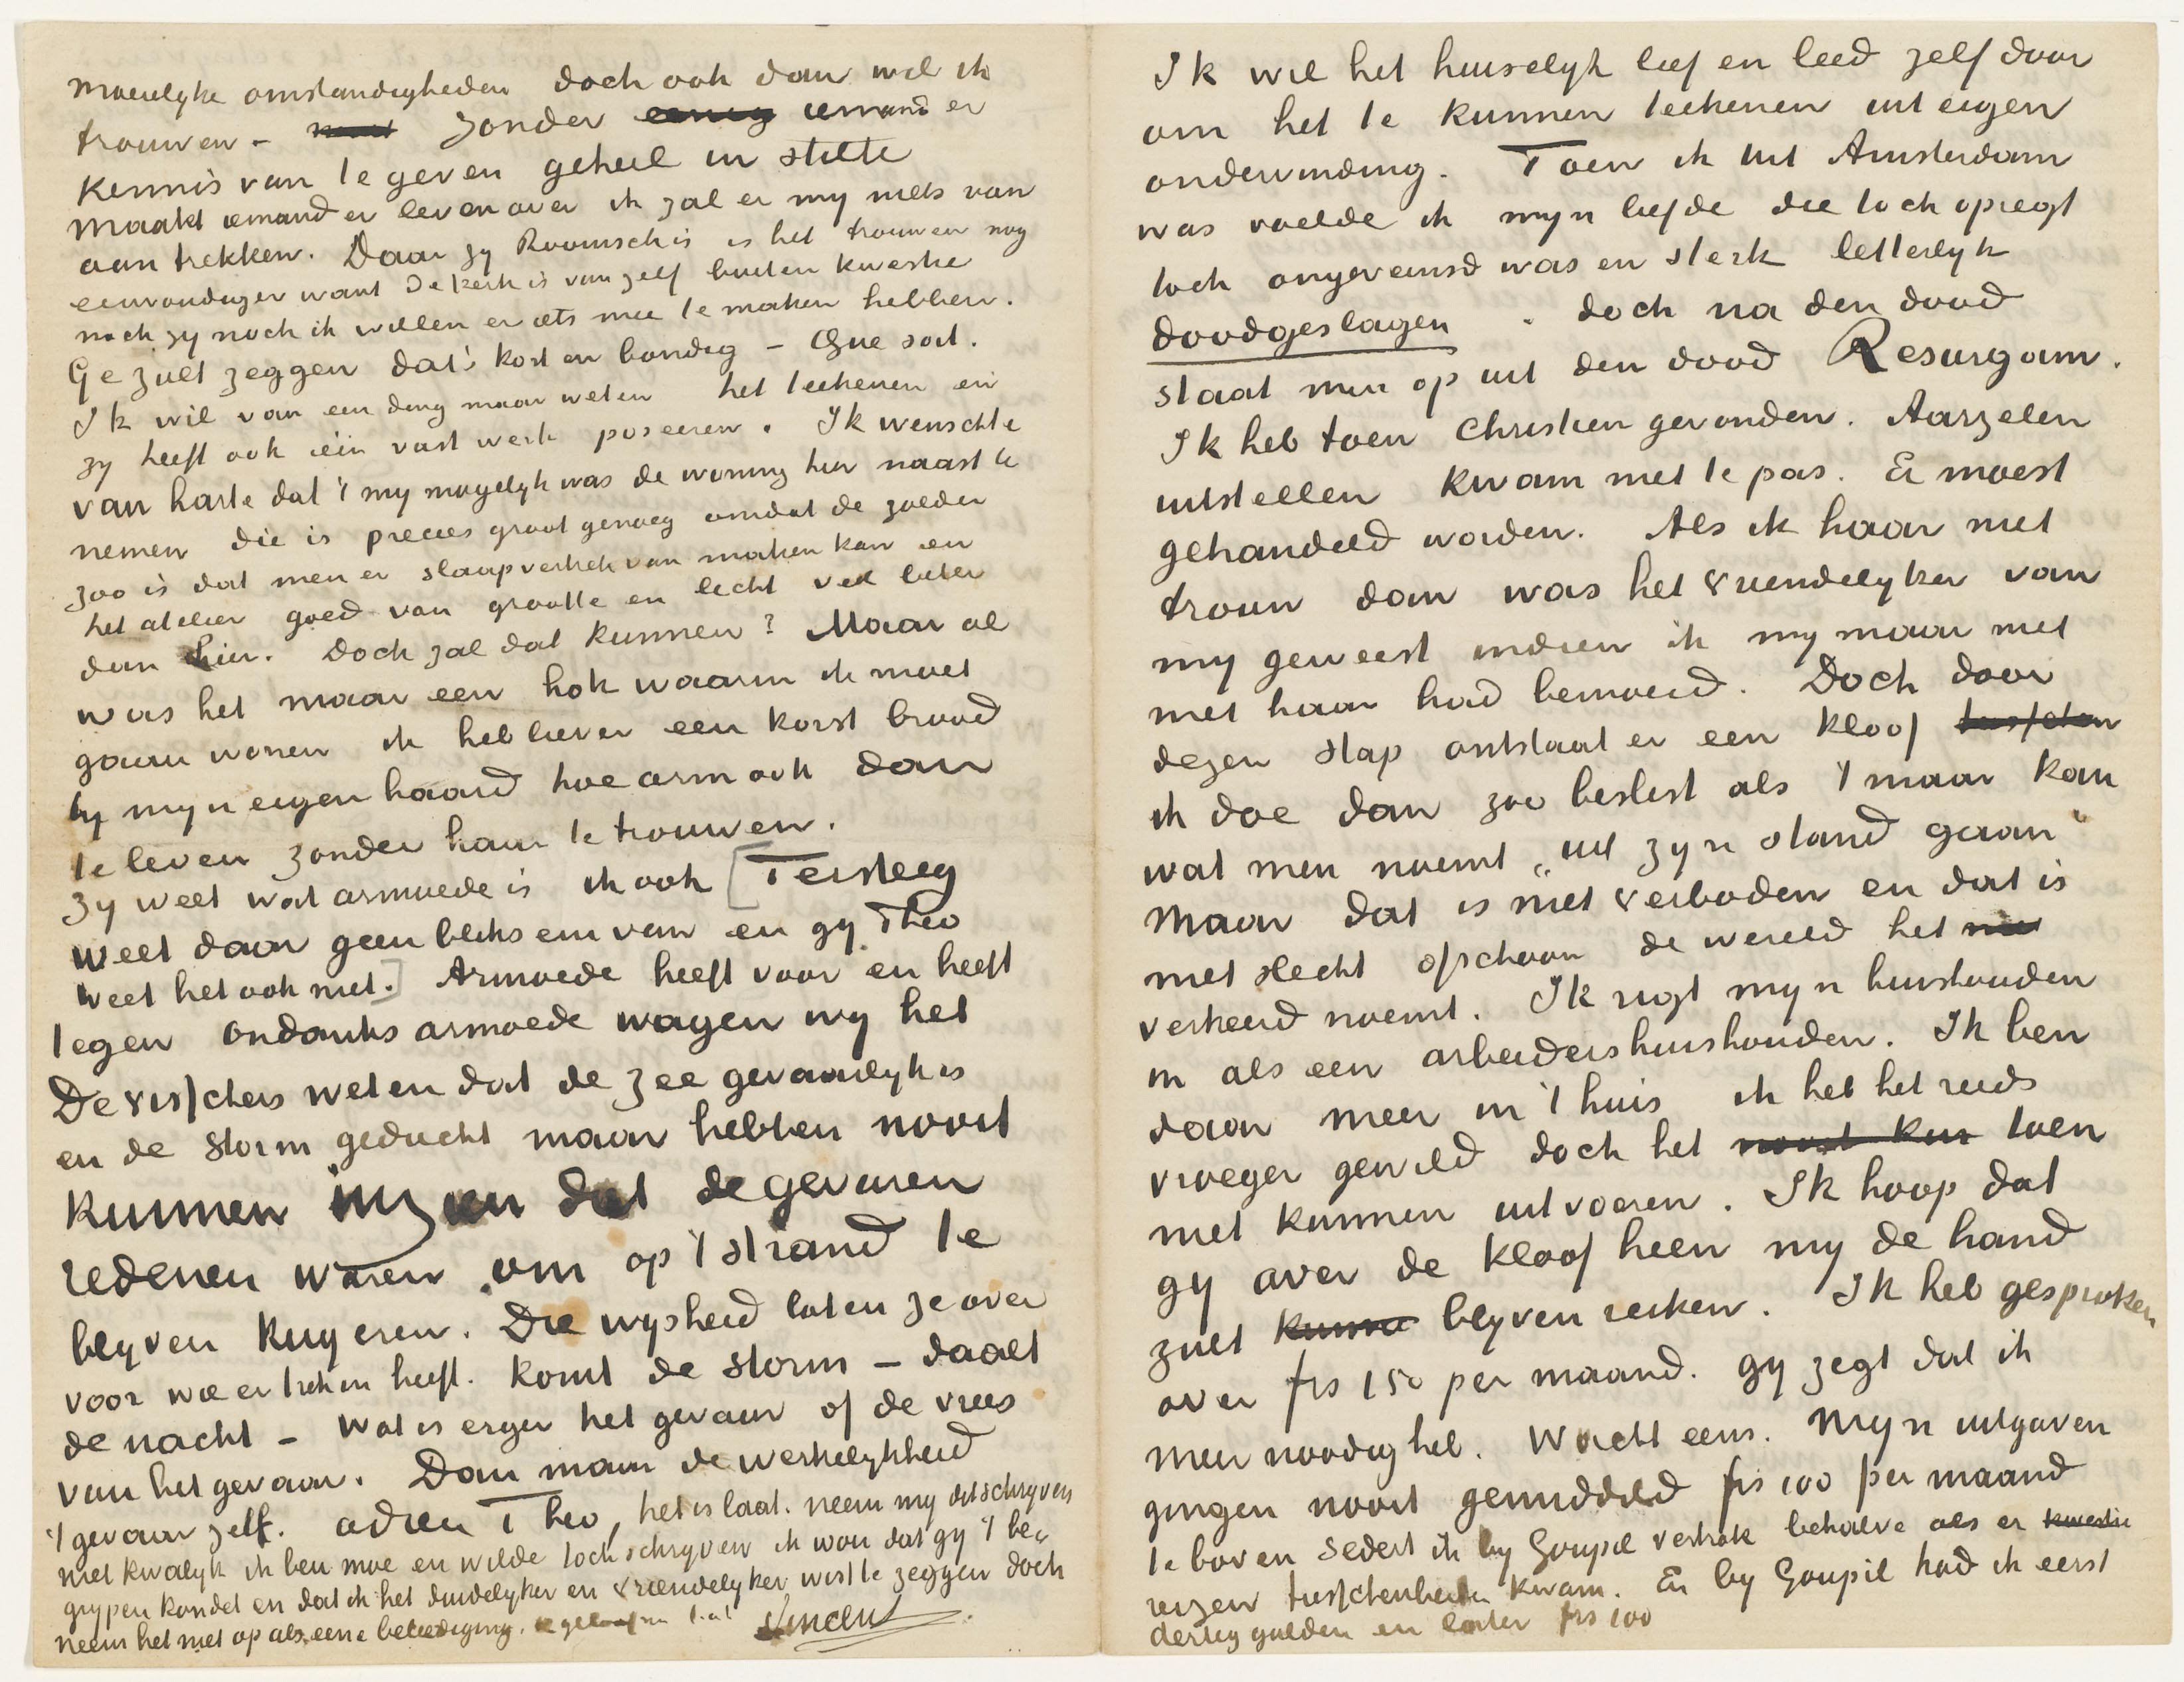 moeielyke omstandigheden doch ook dan wil ik
trouwen – zonder iemand er
kennis van te geven geheel in stilte
maakt iemand er leven over ik zal er my niets van
aan trekken. Daar zy Roomsch is is het trouwen nog
eenvoudiger want de kerk is van zelf buiten kwestie
noch zy noch ik willen er iets mee te maken hebben.
Ge zult zeggen dat's kort en bondig – Que soit.
Ik wil van een ding maar weten het teekenen en
zy heeft ook één vast werk poseeren. Ik wenschte
van harte dat 't my mogelyk was de woning hier naast te
nemen die is precies groot genoeg omdat de zolder
zoo is dat men er slaapvertrek van maken kan en
het atelier goed van grootte en licht veel beter
dan hier. Doch zal dat kunnen? Maar al
was het maar een hok waarin ik moet
gaan wonen ik heb liever een korst brood
by myn eigen haard hoe arm ook dan
te leven zonder haar te trouwen.
Zy weet wat armoede is ik ook [Tersteeg
weet daar geen bliksem van en gy Theo
weet het ook niet.] Armoede heeft voor en heeft
tegen ondanks armoede wagen wy het
De visschers weten dat de zee gevaarlyk is
en de storm geducht maar hebben nooit
kunnen inzien dat de gevaren
redenen waren om op 't strand te
blyven kuyeren. Die wysheid laten ze over
voor wie er trek in heeft. Komt de storm – daalt
de nacht – wat is erger het gevaar of de vrees
van het gevaar. Dan maar de werkelykheid
't gevaar zelf. adieu Theo, het is laat. neem my dit schryven
niet kwalyk ik ben moe en wilde toch schryven ik wou dat gy 't be-
grypen kondet en dat ik het duidelyker en vriendelyker wist te zeggen doch
neem het niet op als eene beleediging. & geloof me t.à.t. Vincent
Ik wil het huiselyk lief en leed zelf door
om het te kunnen teekenen uit eigen
ondervinding. Toen ik uit Amsterdam
was voelde ik myn liefde die toch opregt
toch ongeveinsd was en sterk letterlyk
doodgeslagen. doch na den dood
staat men op uit den dood Resurgam.
Ik heb toen Christien gevonden. Aarzelen
uitstellen kwam niet te pas. Er moest
gehandeld worden. Als ik haar niet
trouw dan was het vriendelyker van
my geweest indien ik my maar niet
met haar had bemoeid. Doch door
dezen stap ontstaat er een kloof tusschen
ik doe dan zoo beslist als 't maar kan
wat men noemt „uit zyn stand gaan"
maar dat is niet verboden en dat is
niet slecht ofschoon de wereld het
verkeerd noemt. Ik rigt myn huishouden
in als een arbeidershuishouden. Ik ben
daar meer in 't huis ik heb het reeds
vroeger gewild doch het nooit kun toen
niet kunnen uitvoeren. Ik hoop dat
gy over de kloof heen my de hand
zult kunne blyven reiken. Ik heb gesproken
over frs 150 per maand. gy zegt dat ik
meer noodig heb. Wacht eens. Myn uitgaven
gingen nooit gemiddeld frs 100 per maand
te boven sedert ik by Goupil vertrok behalve als er kwestie
reizen tusschenbeide kwam. En by Goupil had ik eerst
dertig gulden en later frs 100